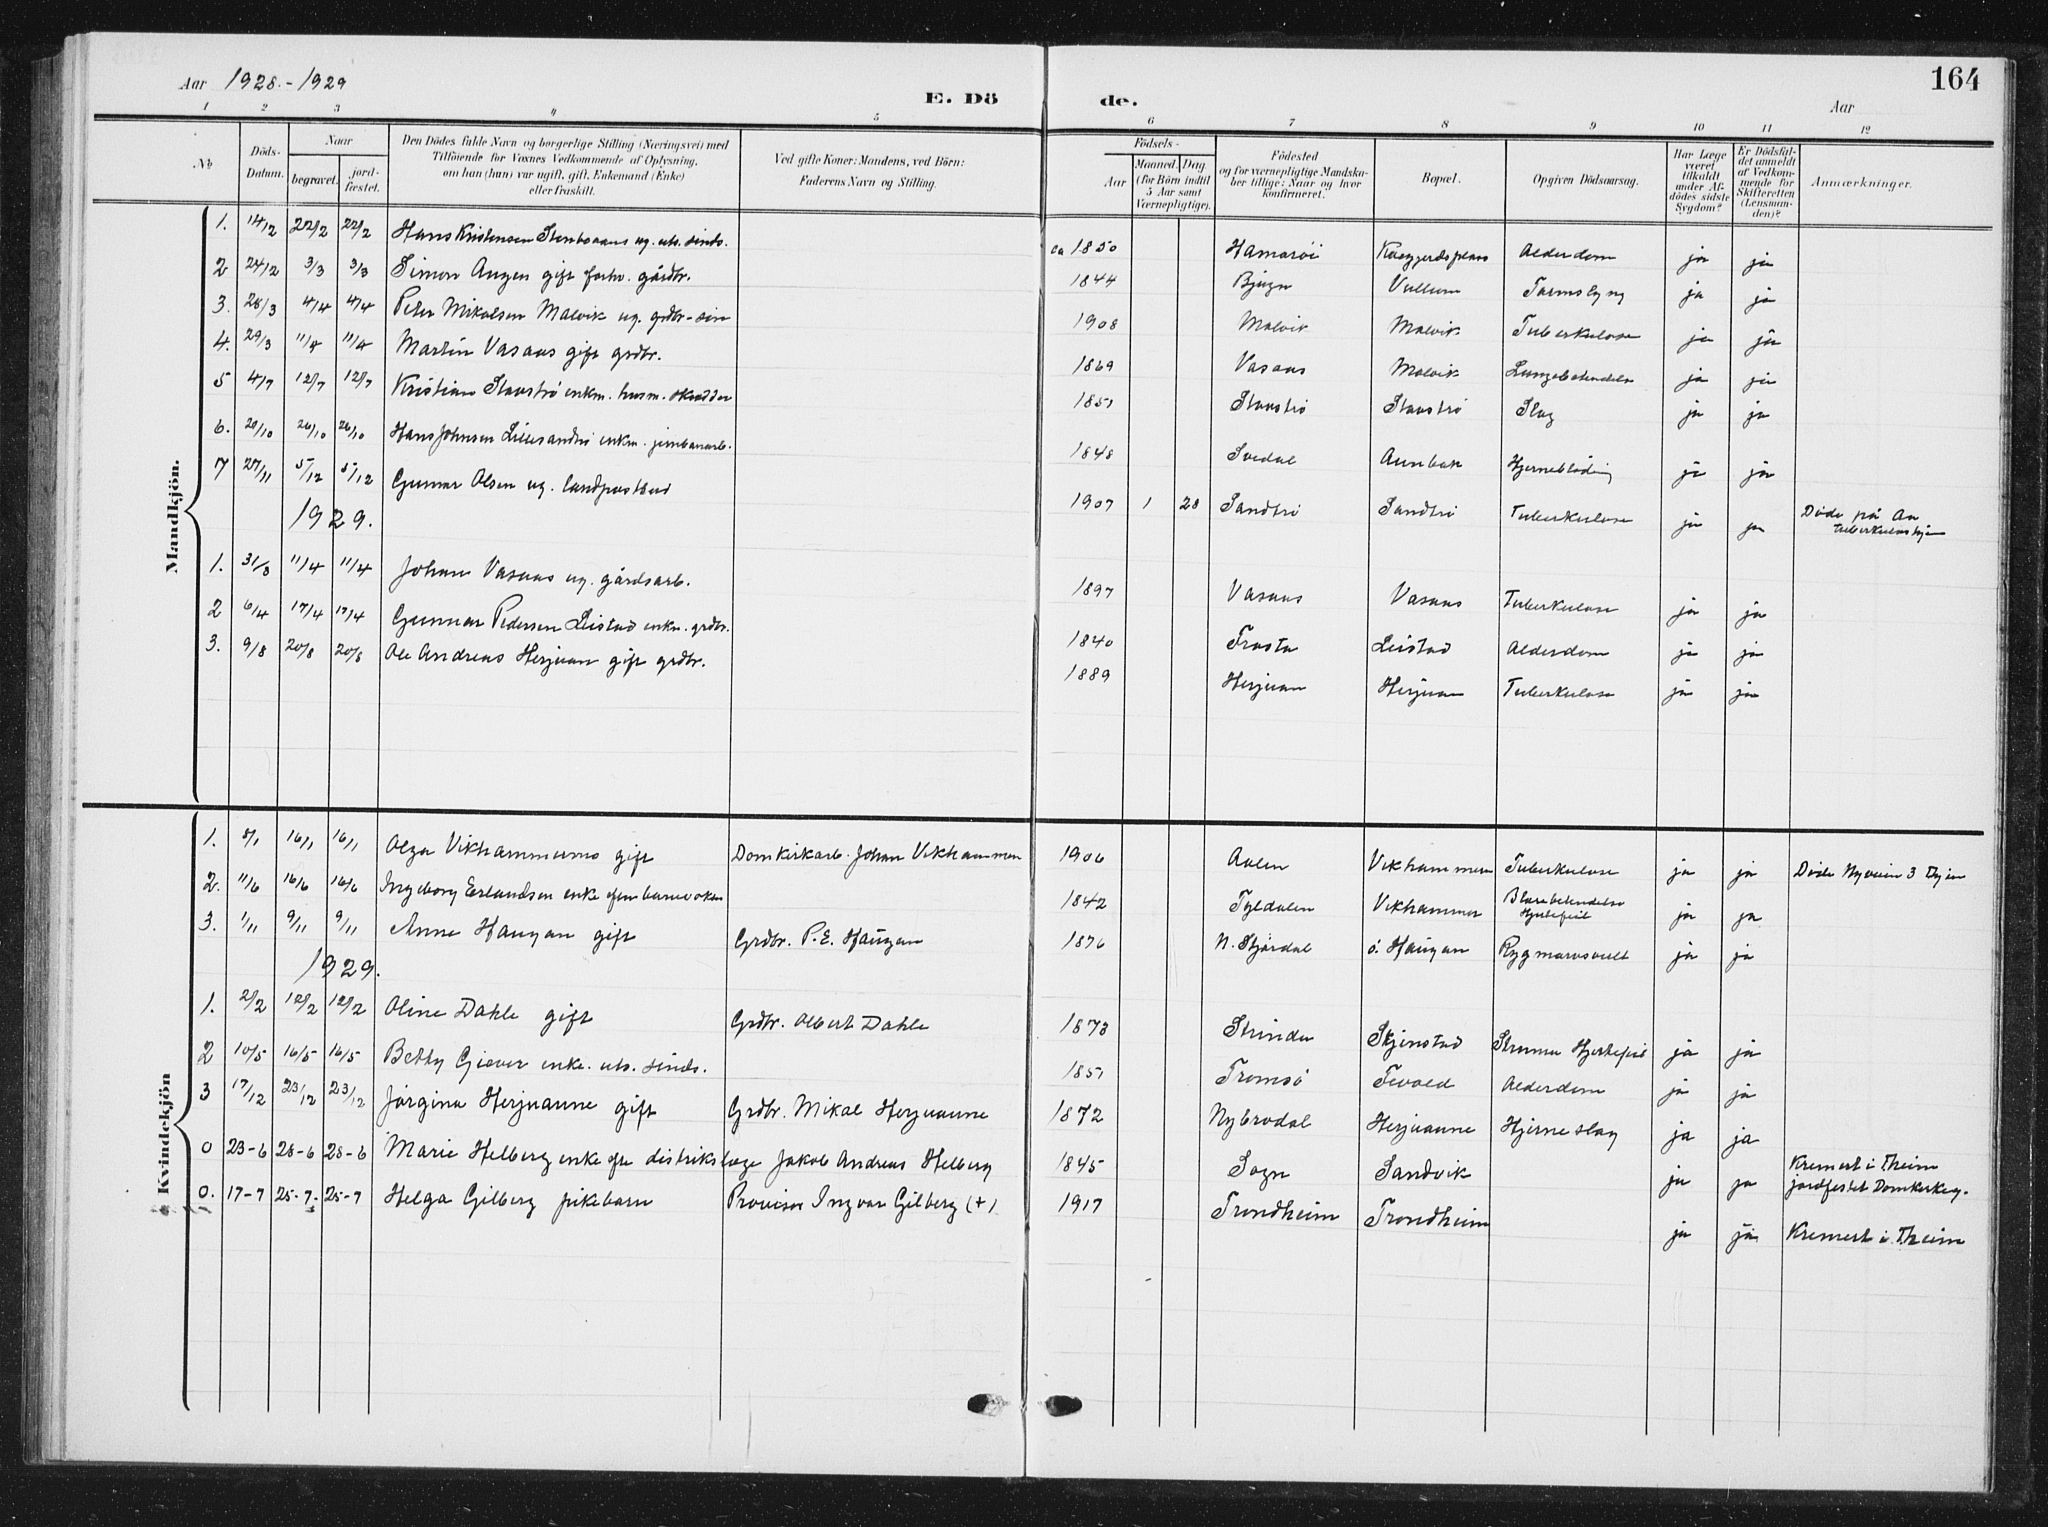 Aar 1928.-1929
E. Dö de.
164
Aar
1 2 3 4 5 6 7 8 9 10 11 12
No
Döds-Datum.
Naar
begravet.
jordfæstet.
Den Dödes fulde Navn og borgerlige Stilling (Næringsvei) med
Tilföiende for Voxnes Vedkommende af Oplysning,
om han (hun) var ugift, gift, Enkemand (Enke)
eller fraskilt.
Ved gifte Koner: Mandens, ved Börn:
Faderens Navn og Stilling.
Födsels-
Aar
Maaned. Dag
(for Börn indtil
5 Aar samt
Værnepligtige).
Födested
og for værnepligtige Mandska-
ber tillige: Naar og hvor
konfirmeret.
Bopæl.
Opgiven Dödsaarsag.
Har Læge
været
tilkaldt
under Af-
dödes sidste
Sygdom?
Er Dödsfal-
det anmeldt
af Vedkom-
mende for
Skifteretten
(Lensman-
den)?
Anmærkninger.
Mandkjön.
1. 14/2 22/2 22/2 Hans Kristensen ug. uts. sinds. ca 1850 Hamaröi Alderdom ja ja
2 24/12 3/3 3/3 Simon Aunen gift forhv. gårdbr. 1844 Bjugn Vullum Tarmslyng ja ja
3. 28/3 4/4 4/4 Peter Mikalsen Malvik ug. grdbr-sön 1908 Malvik Malvik Tuberkulose ja ja
4. 29/3 11/4 11/4 Martin Vasaas gift grdbr. 1869 Vasaas Malvik Lungebetendelse ja ja
5 4/7 12/7 12/7 Kristian Stavströ enkm. husm. skrædder 1851 Stavströ Stavströ Slag ja ja
6. 20/10 26/10 26/10 Hans Johnsen enkm. jernbanearb. 1848 Svedal Hjerneblödning ja ja
7 27/11 5/12 5/12 Gunnar Olsen ug. landpostbud 1907 1 28 Sandtrö Sandtrö Tuberkulose ja ja Döde på
tuberkuloshjem
1929.
1. 31/3 11/4 11/4 Johan Vasaas ug. gårdsarb. 1897 Vasaas Vasaas Tuberkulose ja ja
2 6/4 17/4 17/4 Gunnar Pedersen Leistad enkm. grdbr. 1840 Frosta Leistad Alderdom ja ja
3. 9/8 20/8 20/8 Ole Andreas Herjuan gift grdbr. 1889 Herjuan Herjuan Tuberkulose ja ja
Kvindekjön
1. 8/1 16/1 16/1 Olga Vikhammermo gift Domkirkarb. Johan Vikhammer 1906 Aalen Vikhammer Tuberkulose ja ja Döde Nyveien 3 Thjem
2. 11/6 16/6 16/6 Ingeborg Erlandsen enke efter banevokter 1842 Tyldalen Vikhammer Blærebetendelse
Hjertefeil ja ja
3. 1/11 9/11 9/11 Anne Haugan gift Grdbr. P. E. Haugan 1876 N. Stjördal ö. Haugan Rygmarvsvulst ja ja
1929.
1. 2/2 12/2 12/2 Oline Dahle gift Grdbr. Albert Dahle 1873 Strinda Skjenstad Struma Hjertefeil ja ja
2 10/5 16/5 16/5 Betty Giæver enke. uts. sinds. 1851 Tromsö Tevold Alderdom ja ja
3 17/12 23/12 23/12 Jörgina Herjuaune gift Grdbr. Mikal Herjuaune 1872 Nybrodal Herjuaune Hjerneslag ja ja
0 23-6 28-6 28-6 Marie Helberg enke efter distrikslæge Jakob Andreas Helberg 1845 Sogn Sandvik ja ja Kremert i Theim
jordfestet Domkirkeg.
0. 17-7 25-7. 25-7 Helga Gilberg pikebarn Provisor Ingvar Gilberg (+) 1917 Trondheim Trondheim ja ja Kremert i Theim